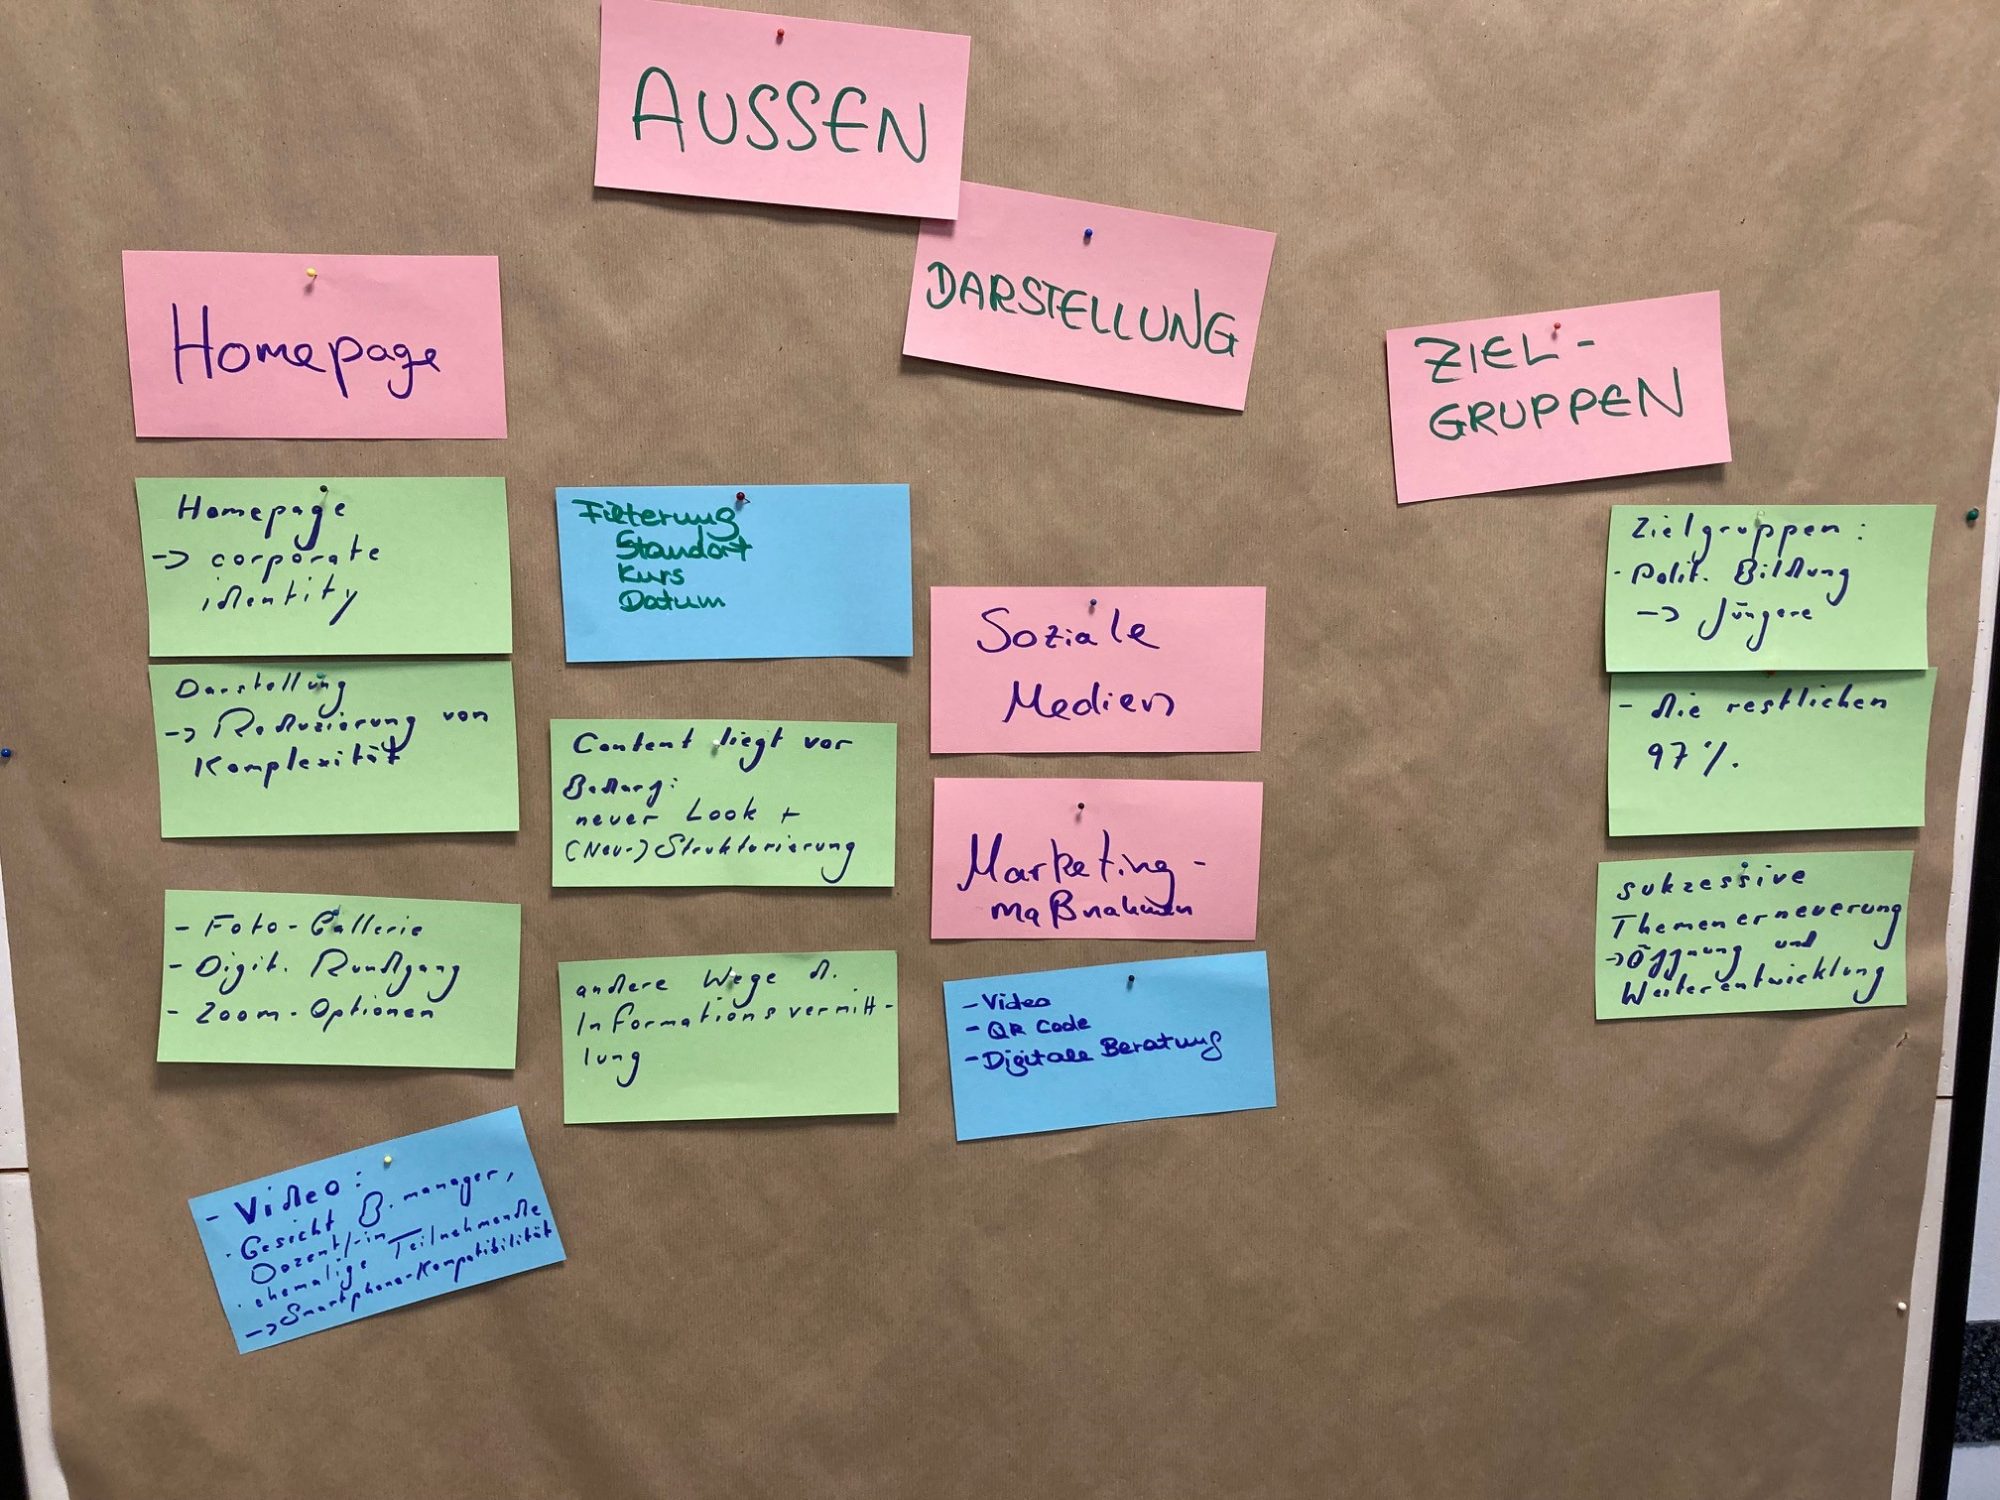 AUSSEN
DARSTELLUNG
Homepage
Homepage
-> corporate
identity
Darstellung
-> Reduzierung von
Komplexität
- Foto-Gallerie
- Digit. Rundgang
- Zoom-Optionen
- Video:
· Gesicht B.manager,
Dozent/-in
· ehemalige Teilnehmende
-> Smartphone-Kompatibilität
Filterung
Standort
Kurs
Datum
Content liegt vor
Bedarf:
neuer Look +
(Neu-)Strukturierung
andere Wege d.
Informationsvermitt-
lung
Soziale
Medien
Marketing-
maßnahmen
- Video
- QR Code
- Digitale Beratung
ZIEL-
GRUPPEN
Zielgruppen:
- Polit. Bildung
-> Jüngere
- die restlichen
97%.
sukzessive
Themenerneuerung
-> Öffnung und
Weiterentwicklung